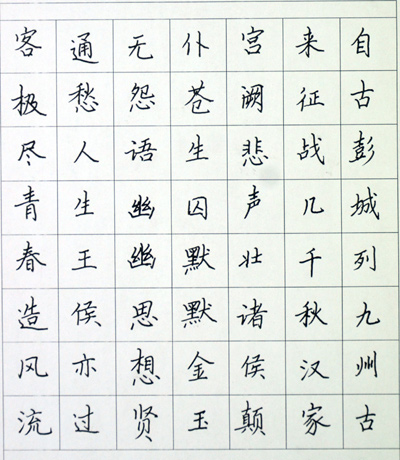 自古彭城列九州古
来征战几千秋汉家
宫阙悲声壮诸侯颠
仆苍生囚默默金玉
无怨语幽幽思想贤
通愁人生王侯亦过
客极尽青春造风流